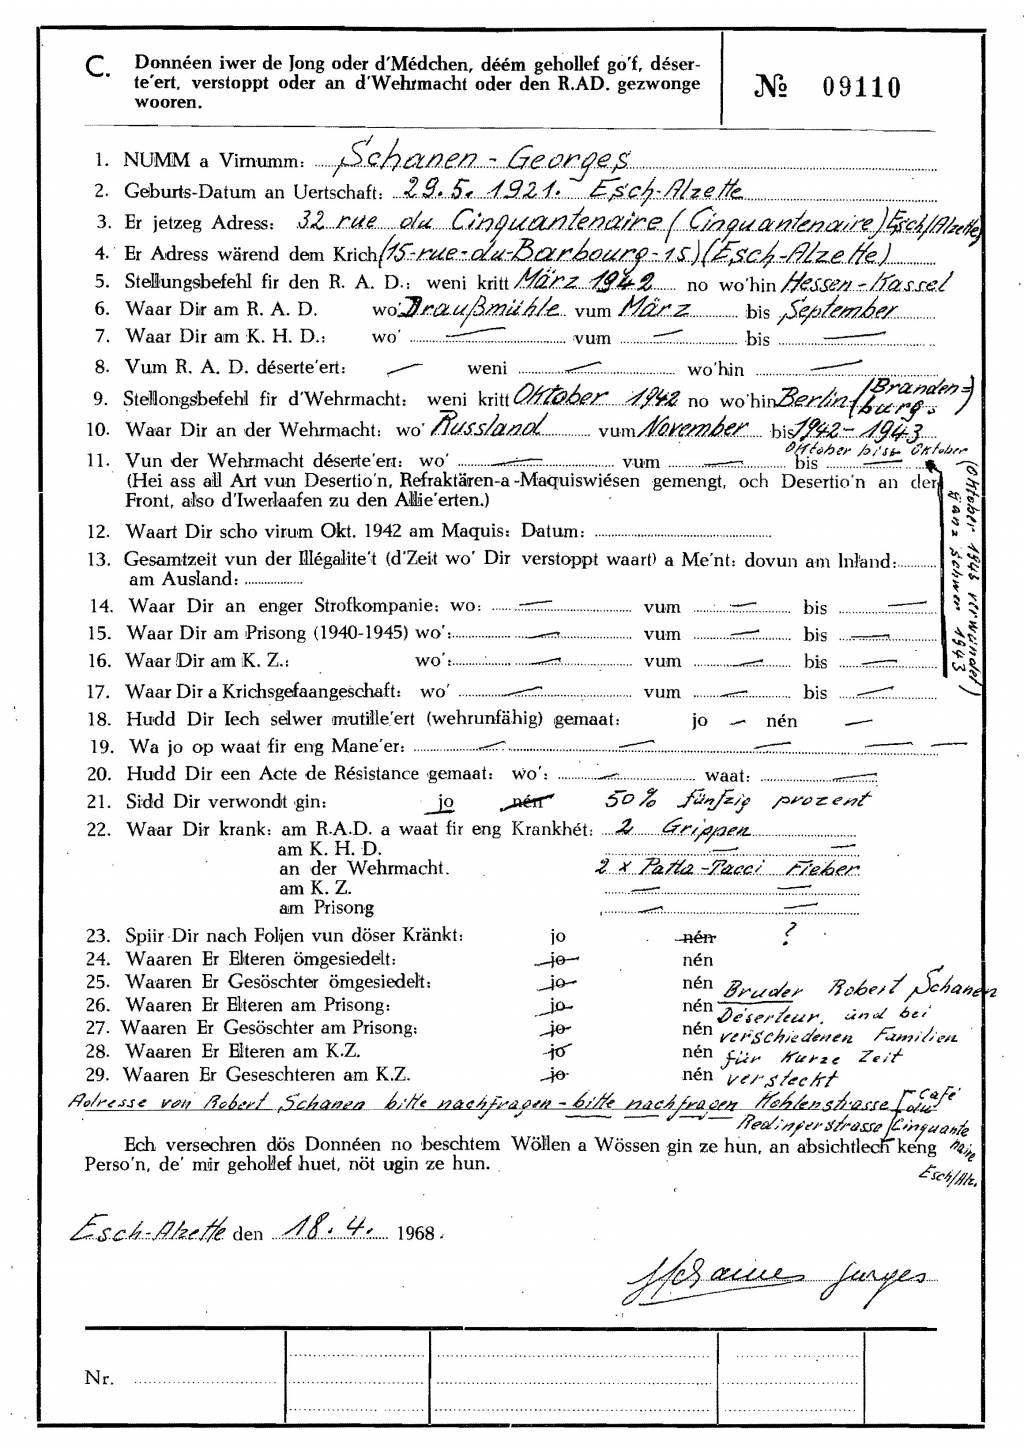 C. Donnéen iwer de Jong oder d'Médchen, déém gehollef go'f, déser-
te'ert, verstoppt oder an d'Wehrmacht oder den R.AD. gezwonge
wooren.
№ 09110
1. NUMM a Virnumm: Schanen - Georges
2. Geburts-Datum an Uertschaft: 29.5.1921. Esch-Alzette
3. Er jetzeg Adress: 32 rue du Cinquantenaire (Cinquantenaire) Esch/Alzette
4. Er Adress wärend dem Krich (15-rue-du-Barbourg-15) (Esch-Alzette)
5. Stellungsbefehl fir den R. A. D.: weni kritt März 1942 no wo'hin Hessen-Kassel
6. Waar Dir am R. A. D. wo' Draußmühle vum März bis September
7. Waar Dir am K. H. D.: wo' — vum — bis —
8. Vum R. A. D. déserte'ert: — weni — wo'hin —
9. Stellongsbefehl fir d'Wehrmacht: weni kritt Oktober 1942 no wo'hin Berlin (Branden=
burg)
10. Waar Dir an der Wehrmacht: wo' Russland vum November bis 1942-1943
Oktober bis Oktober
11. Vun der Wehrmacht déserte'ert: wo' — vum — bis —
(Hei ass all Art vun Desertio'n, Refraktären-a-Maquiswiésen gemengt, och Desertio'n an der
Front, also d'Iwerlaafen zu den Allie'erten.)
(Oktober 1943 verwundet)
ganz schwer 1943
12. Waart Dir scho virum Okt. 1942 am Maquis: Datum:
13. Gesamtzeit vun der Illégalite't (d'Zeit wo' Dir verstoppt waart) a Me'nt: dovun am Inland:
am Ausland:
14. Waar Dir an enger Strofkompanie: wo: — vum — bis —
15. Waar Dir am Prisong (1940-1945) wo': — vum — bis —
16. Waar Dir am K. Z.: wo': — vum — bis —
17. Waar Dir a Krichsgefaangeschaft: wo' — vum — bis —
18. Hudd Dir Iech selwer mutille'ert (wehrunfähig) gemaat: jo — nén —
19. Wa jo op waat fir eng Mane'er: — — — — —
20. Hudd Dir een Acte de Résistance gemaat: wo': — waat: —
21. Sidd Dir verwondt gin: jo nén 50% fünfzig prozent
22. Waar Dir krank: am R.A.D. a waat fir eng Krankhét: 2 Grippen
am K. H. D. — —
an der Wehrmacht. 2 x Patta-Pacci Fieber
am K. Z. — —
am Prisong — —
23. Spiir Dir nach Foljen vun döser Kränkt: jo nén ?
24. Waaren Er Elteren ömgesiedelt: jo nén
25. Waaren Er Gesöschter ömgesiedelt: jo nén Bruder Robert Schanen
26. Waaren Er Elteren am Prisong: jo nén Déserteur. und bei
27. Waaren Er Gesöschter am Prisong: jo nén verschiedenen Familien
28. Waaren Er Elteren am K.Z. jo nén für Kurze Zeit
29. Waaren Er Geseschteren am K.Z. jo nén versteckt
Adresse von Robert Schanen bitte nachfragen - bitte nachfragen Kohlenstrasse Café
Redingerstrasse du Cinquante
naire
Esch/Alz.
Ech versechren dös Donnéen no beschtem Wöllen a Wössen gin ze hun, an absichtlech keng
Perso'n, de' mir gehollef huet, nöt ugin ze hun.
Esch-Alzette den 18.4. 1968.
Schanen Georges
Nr.